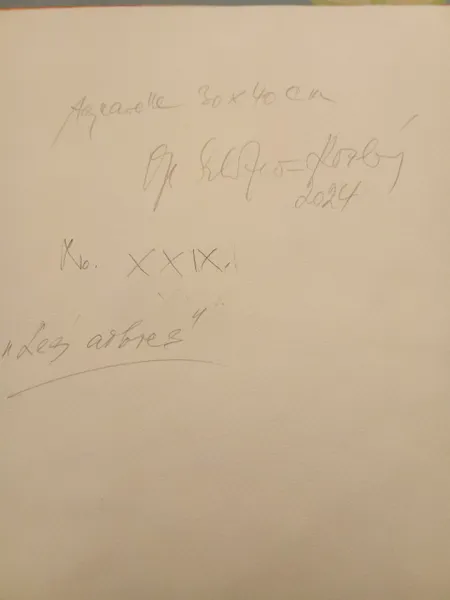 Aquarelle 30 x 40 cm
2024
No. XXIX.
„Les arbres"